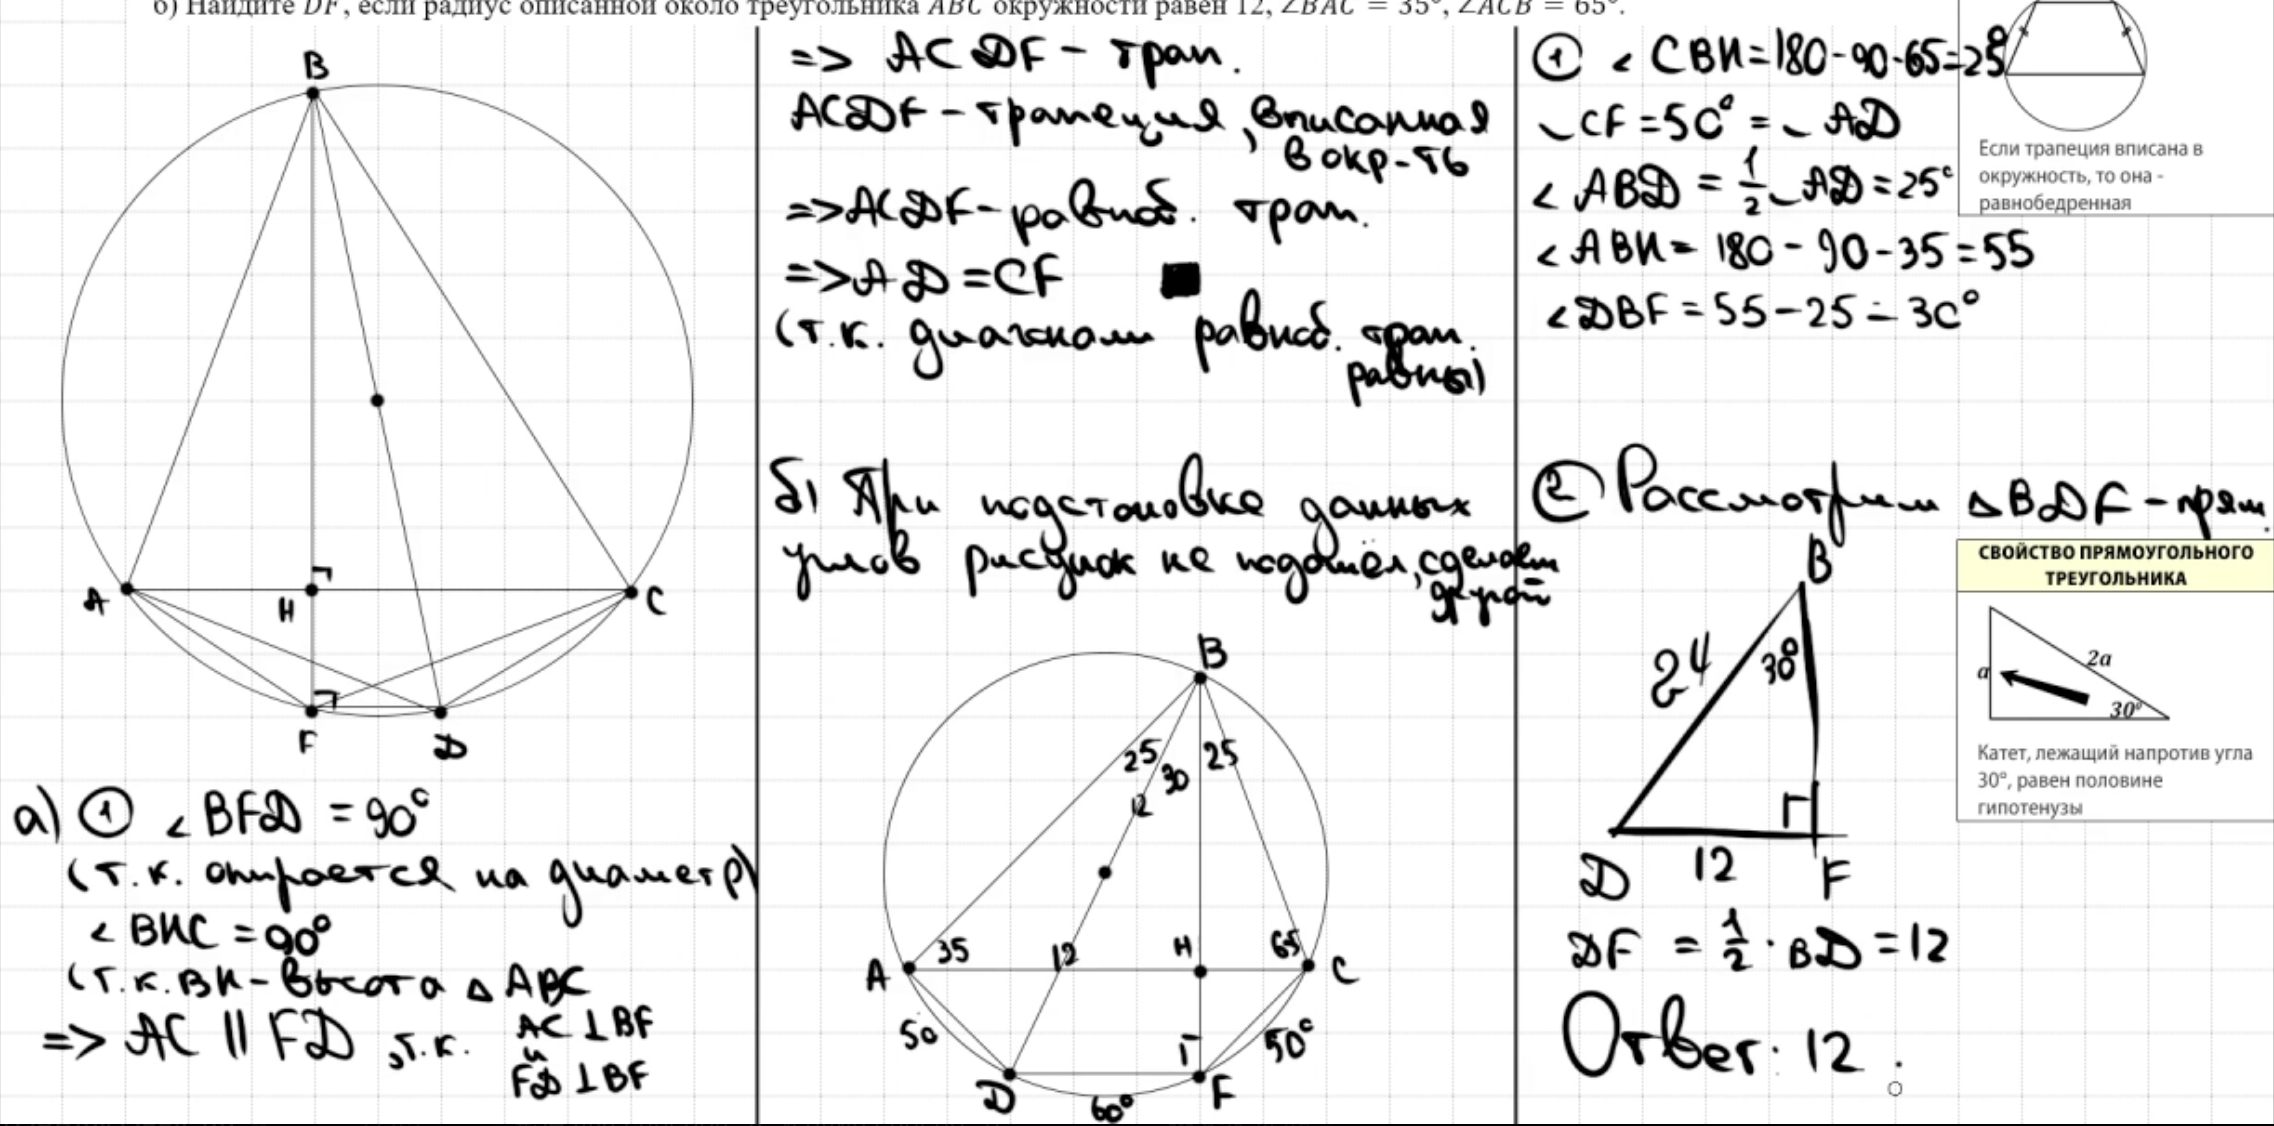 б) Найдите DF, если радиус описанной около треугольника ABC окружности равен 12, ∠BAC = 35°, ∠ACB = 65°.
B
A
H
C
F
D
а) ① ∠ BFD = 90°
(т.к. опирается на диаметр)
∠ BHC = 90°
(т.к. BH - высота △ ABC
=> AC || FD , т.к. AC ⊥ BF
и
FD ⊥ BF
=> ACDF - трап.
ACDF - трапеция, вписанная
в окр-ть
=> ACDF - равноб. трап.
=> AD = CF ■
(т.к. диагонали равноб. трап.
равны)
б) При подстановке данных
углов рисунок не подошёл, сделаем
другой
B
25
30
25
12
A
35
12
H
65
C
50
50°
D
60°
F
① ∠ CBH = 180 - 90 - 65 = 25°
◡ CF = 50° = ◡ AD
∠ ABD = 1/2 ◡ AD = 25°
∠ ABH = 180 - 90 - 35 = 55
∠ DBF = 55 - 25 = 30°
Если трапеция вписана в
окружность, то она -
равнобедренная
② Рассмотрим △ BDF - прям.
B
24
30°
D
12
F
СВОЙСТВО ПРЯМОУГОЛЬНОГО
ТРЕУГОЛЬНИКА
a
2a
30°
Катет, лежащий напротив угла
30°, равен половине
гипотенузы
DF = 1/2 · BD = 12
Ответ: 12 .